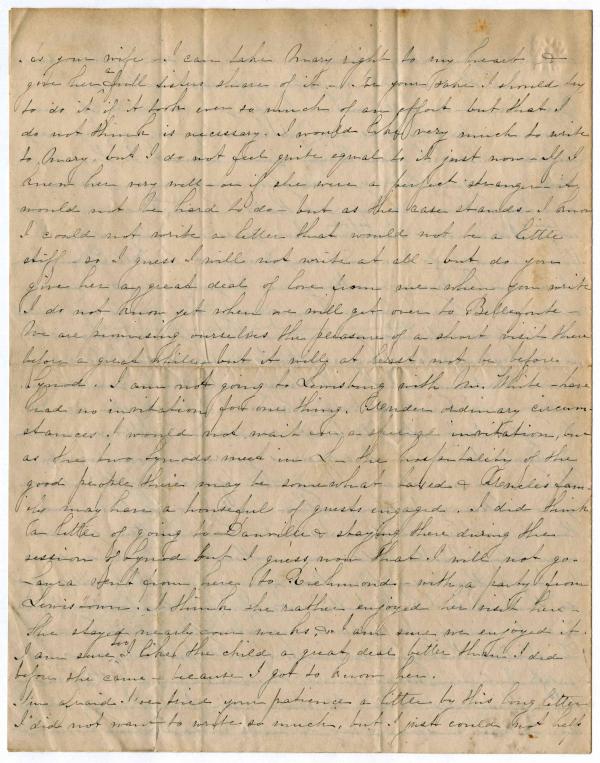 as your wife - I can take Mary right to my heart &
give her a full sisters share of it - For your sake I should try
to do it if it took ever so much of an effort - but that I
do not think is necessary. I would like very much to write
to Mary, but I do not feel quite equal to it just now - If I
knew her very well - or if she were a perfect stranger - it
would not be hard to do - but as the case stands - I know
I could not write a letter that would not be a little
stiff - so I guess I will not write at all - but do you
give her a great deal of love from me - when you write
I do not know yet when we will get over to Bellefonte -
We are promising ourselves the pleasure of a short visit there
before a great while - but it will at least not be before
Synod. I am not going to Lewisburg with Mr. White - have
had no invitation for one thing. Under ordinary circum-
stances I would not wait for a special invitation, but
as the two Synods meet in L - the hospitality of the
good people there may be somewhat taxed & Uncle's fam-
ily may have a houseful of guests engaged. I did think
a little of going to Danville & staying there during the
session of Synod but I guess now that I will not go -
went from here to Richmond - with a party from
Lewistown. I think she rather enjoyed her visit here -
She stayed nearly four weeks, & I am sure we enjoyed it.
I am sure I like the child a great deal better than I did
before she came - because I got to know her.
I'm afraid I've tired your patience a little by this long letter
I did not want to write so much, but I just could not help